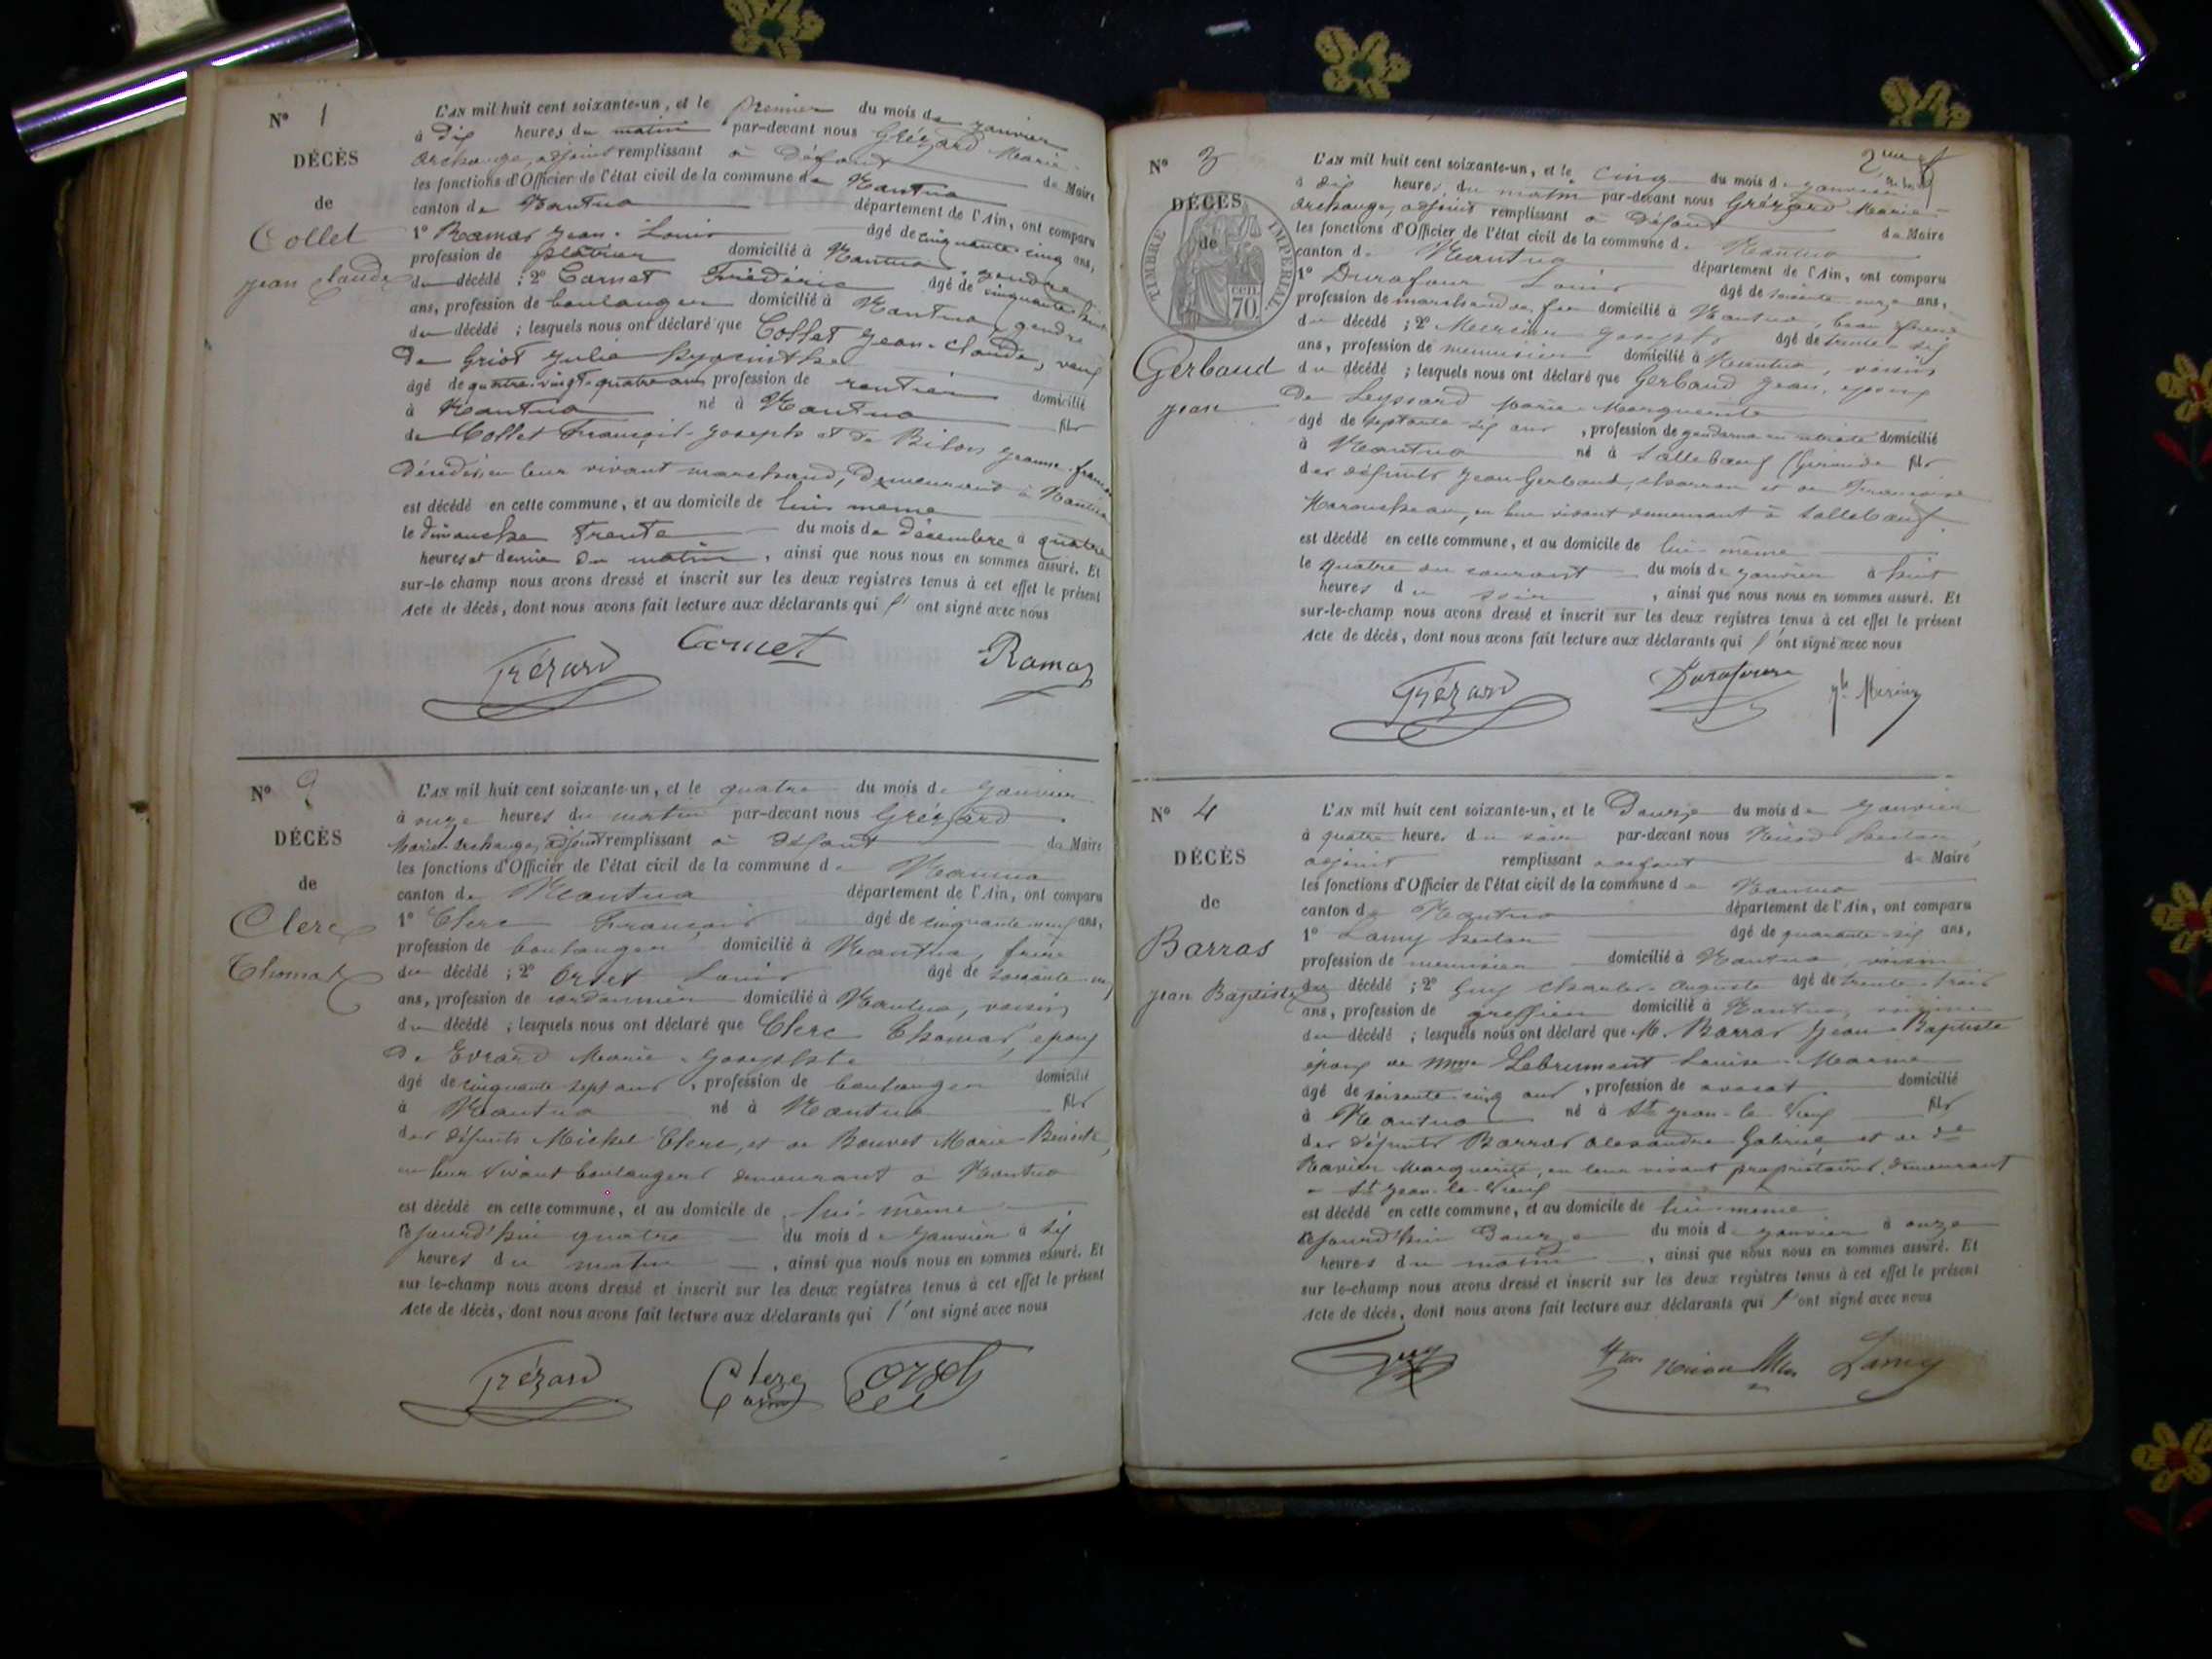 N° 1
DÉCÈS
de
Collet
Jean Claude
L'AN mil huit cent soixante-un, et le premier du mois de janvier
à dix heures du matin par-devant nous Grézard Marie-
Archange, adjoint remplissant à défaut de Maire
les fonctions d'Officier de l'état civil de la commune de Nantua
canton de Nantua département de l'Ain, ont comparu
1° Ramas Jean-Louis âgé de cinquante cinq ans,
profession de plâtrier domicilié à Nantua, gendre
du décédé ; 2° Cornet Frédéric âgé de cinquante huit
ans, profession de boulanger domicilié à Nantua, gendre
du décédé ; lesquels nous ont déclaré que Collet Jean-Claude, veuf
de Griot Julie hyacinthe
âgé de quatre-vingt-quatre ans profession de rentier domicilié
à Nantua né à Nantua fils
de Collet François-Joseph et de Bilon Jeanne-
Décédés, en leur vivant marchand, demeurant à Nantua
est décédé en cette commune, et au domicile de lui même
le dimanche trente du mois de décembre à quatre
heures et demie du matin, ainsi que nous nous en sommes assuré. Et
sur-le champ nous avons dressé et inscrit sur les deux registres tenus à cet effet le présent
Acte de décès, dont nous avons fait lecture aux déclarants qui l'ont signé avec nous
Grézard Cornet Ramas
N° 2
DÉCÈS
de
Clerc
Thomas
L'AN mil huit cent soixante-un, et le quatre du mois de janvier
à onze heures du matin par-devant nous Grézard
Marie-Archange, adjoint remplissant à défaut de Maire
les fonctions d'Officier de l'état civil de la commune de Nantua
canton de Nantua département de l'Ain, ont comparu
1° Clerc François âgé de cinquante neuf ans,
profession de boulanger domicilié à Nantua, frère
du décédé ; 2° Orset Louis âgé de soixante-un
ans, profession de cordonnier domicilié à Nantua, voisin
du décédé ; lesquels nous ont déclaré que Clerc Thomas, époux
de Evrard Marie-Josephte
âgé de cinquante sept ans, profession de boulanger domicilié
à Nantua né à Nantua fils
des défunts Michel Clerc, et de Bouvet Marie-
en leur vivant boulangers demeurant à Nantua
est décédé en cette commune, et au domicile de lui-même
cejourd'hui quatre du mois de janvier à six
heures du matin, ainsi que nous nous en sommes assuré. Et
sur le-champ nous avons dressé et inscrit sur les deux registres tenus à cet effet le présent
Acte de décès, dont nous avons fait lecture aux déclarants qui l'ont signé avec nous
Grézard Clerc Orset
N° 3
DÉCÈS
de
TIMBRE IMPERIAL
70 cen.
Gerbaud
Jean
2me f
L'AN mil huit cent soixante-un, et le cinq du mois de janvier
à dix heures du matin par-devant nous Grézard Marie-
Archange, adjoint remplissant à défaut de Maire
les fonctions d'Officier de l'état civil de la commune de Nantua
canton de Nantua département de l'Ain, ont comparu
1° Durafour Louis âgé de soixante-onze ans,
profession de marchand de fer domicilié à Nantua, beau frère
du décédé ; 2° Mercier Joseph âgé de trente-six
ans, profession de menuisier domicilié à Nantua, voisin
du décédé ; lesquels nous ont déclaré que Gerbaud Jean, époux
de Leyssard Marie-Marguerite
âgé de septante-six ans, profession de gendarme en retraite domicilié
à Nantua né à Sallebœuf (Gironde fils
des défunts Jean Gerbaud, charron et de Françoise
en leur vivant demeurant à Sallebœuf.
est décédé en cette commune, et au domicile de lui-même
le quatre du courant du mois de janvier à huit
heures du soir, ainsi que nous nous en sommes assuré. Et
sur-le-champ nous avons dressé et inscrit sur les deux registres tenus à cet effet le présent
Acte de décès, dont nous avons fait lecture aux déclarants qui l'ont signé avec nous
Grézard Durafour
N° 4
DÉCÈS
de
Barras
Jean Baptiste
L'AN mil huit cent soixante-un, et le Douze du mois de janvier
à quatre heures du soir par-devant nous
adjoint remplissant à défaut de Maire
les fonctions d'Officier de l'état civil de la commune de Nantua
canton de Nantua département de l'Ain, ont comparu
1° Lamy âgé de quarante-six ans,
profession de menuisier domicilié à Nantua, voisin
du décédé ; 2° Guy Charles-Auguste âgé de trente-trois
ans, profession de greffier domicilié à Nantua, voisin
du décédé ; lesquels nous ont déclaré que M. Barras Jean-Baptiste
époux de Mme Lebrument Louise-
âgé de soixante-cinq ans, profession de avocat domicilié
à Nantua né à St Jean-le-Vieux fils
des défunts Barras Alexandre Gabriel et de de
Ravier Marguerite, en leur vivant propriétaires, demeurant
à St Jean-le-Vieux
est décédé en cette commune, et au domicile de lui-même
cejourd'hui Douze du mois de janvier à onze
heures du matin, ainsi que nous nous en sommes assuré. Et
sur le-champ nous avons dressé et inscrit sur les deux registres tenus à cet effet le présent
Acte de décès, dont nous avons fait lecture aux déclarants qui l'ont signé avec nous
Guy Lamy